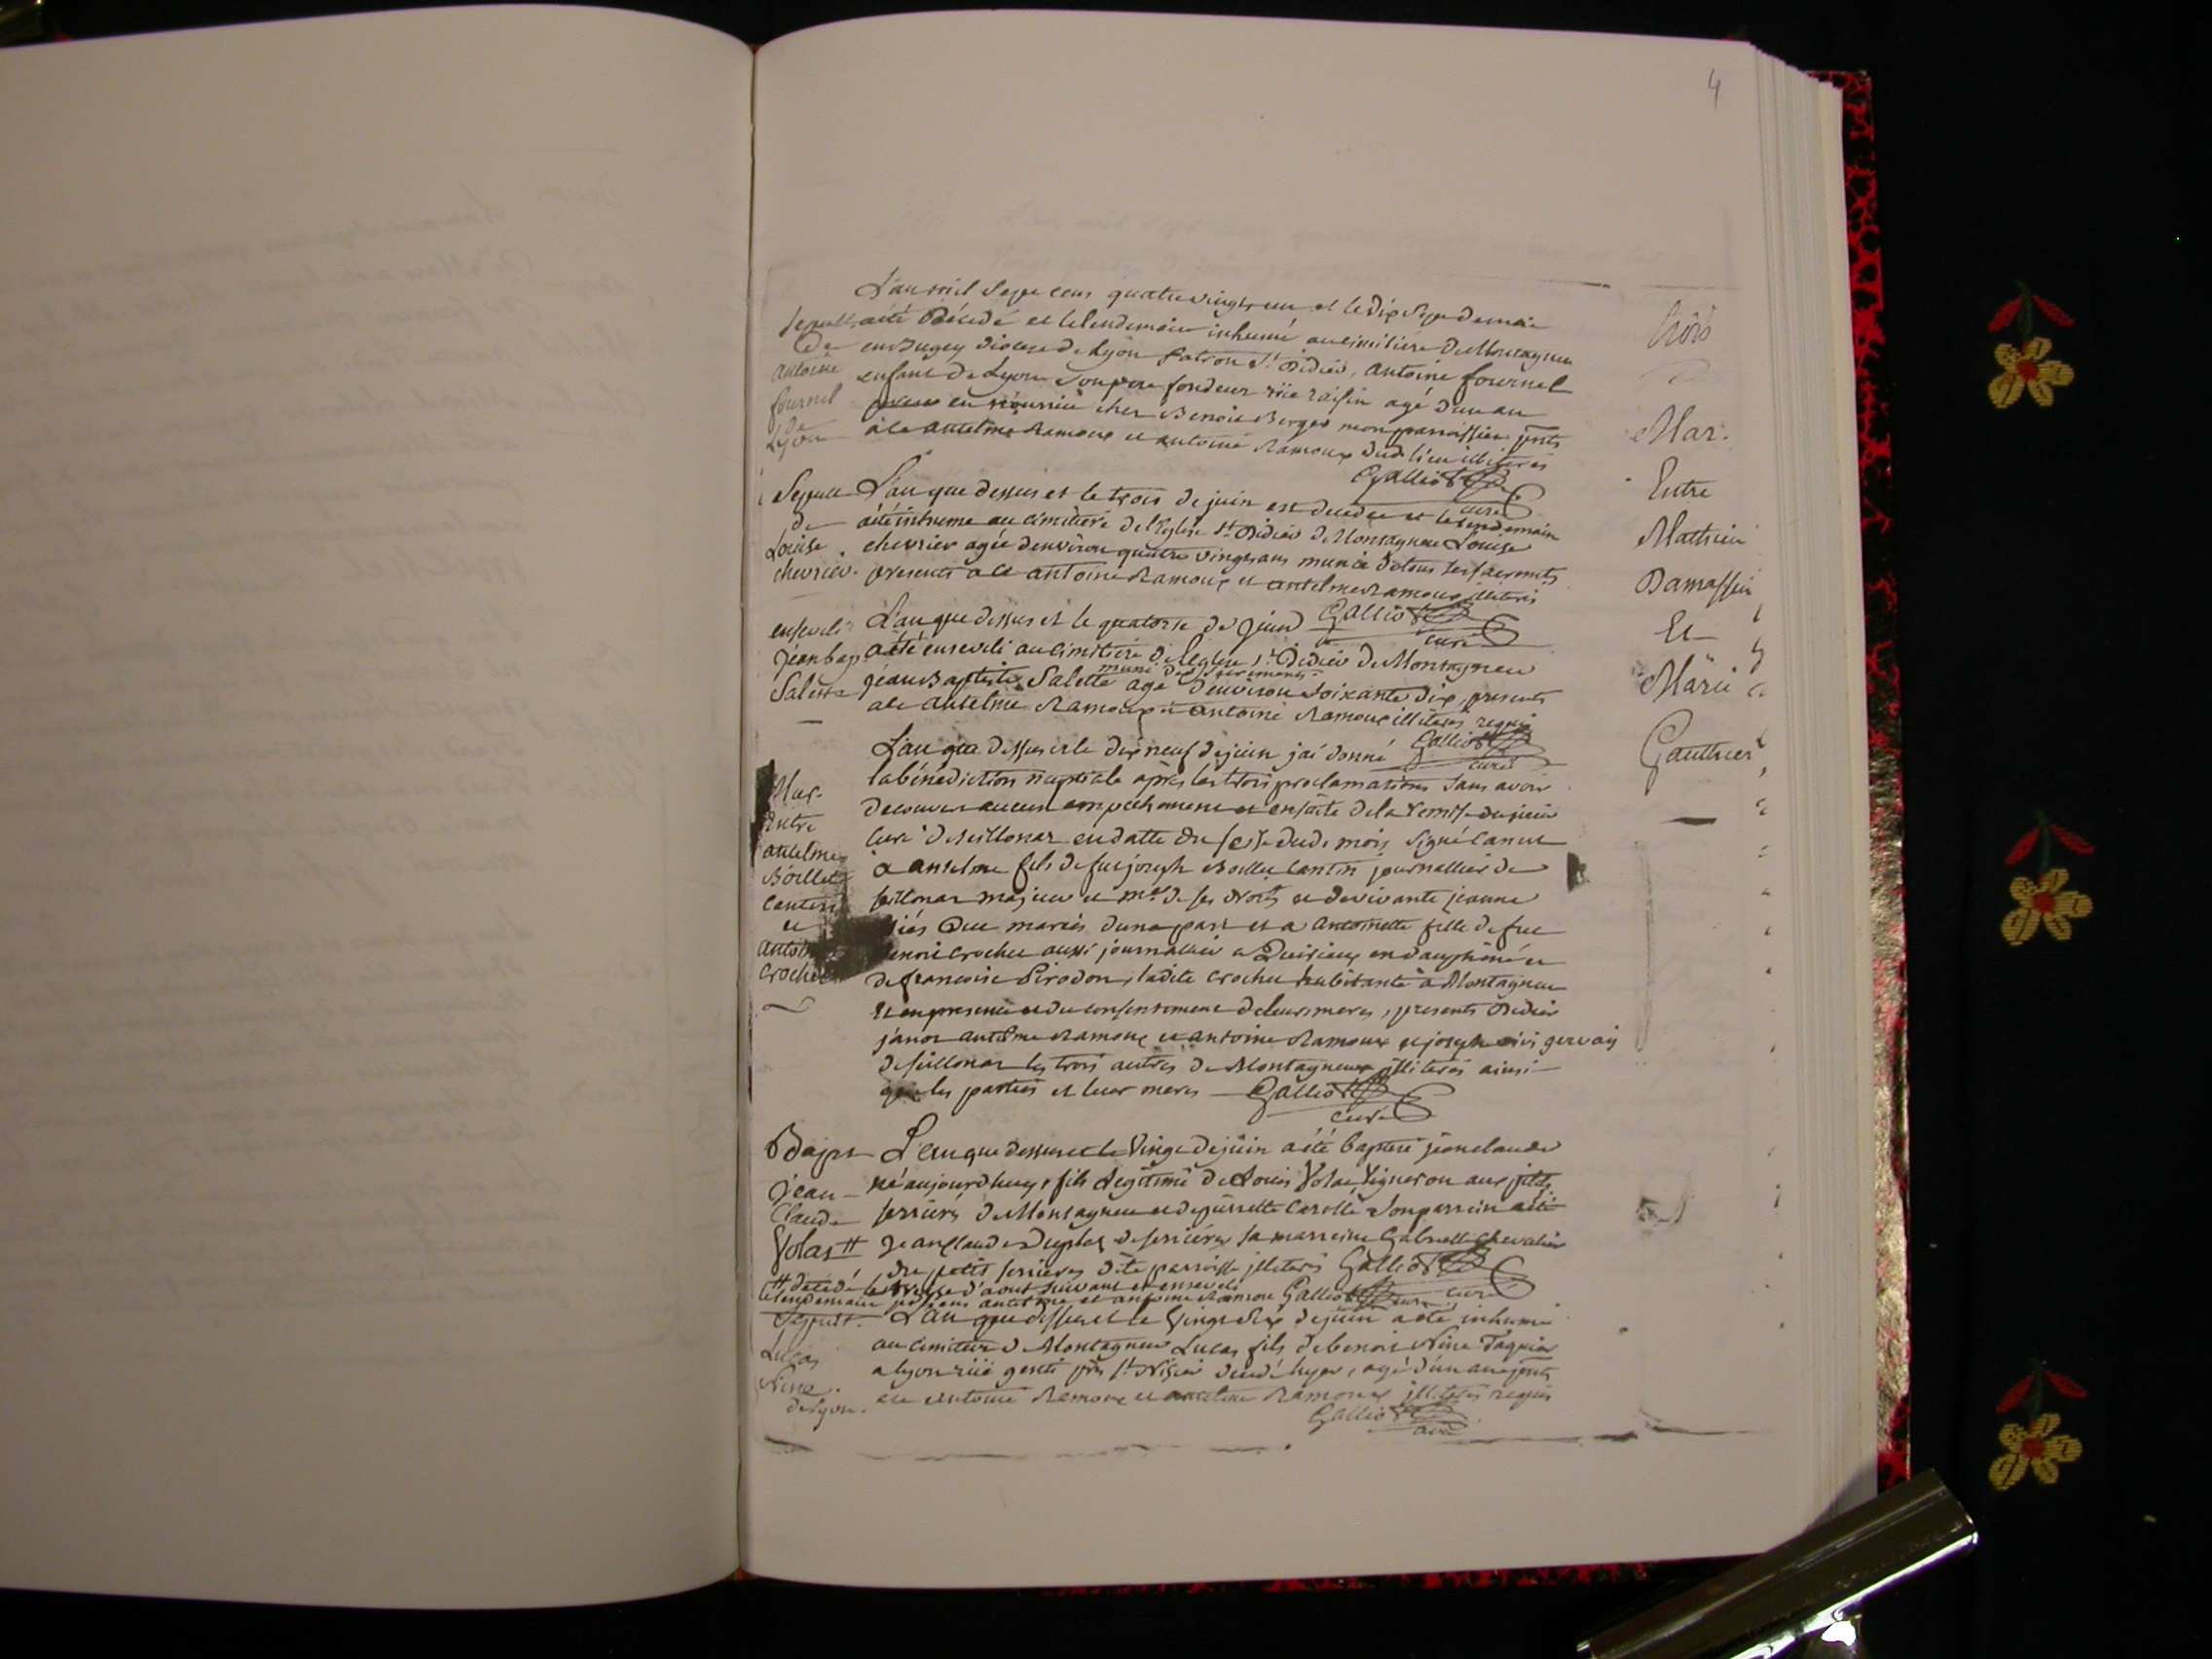 4
L'an mil sept cens quatre vingt un et le dix sept de mai
a été décédé et le lendemain inhumé au cimitière de Montagneu
en Bugey diocese de Lyon patron St Didier, antoine fournel
enfant de Lyon son pere fondeur rüe raisin agé d'un an
en nourrice cher Benoit Berger mon parroissien pnts
à ce antelme Ramoux et antoine Ramoux dud. lieu illiterés
Gallio
curé
sepult
De
antoine
fournel
de
Lyon
L'an que dessus et le trois de juin est decedee et le lendemain
a été inhumé au cimitière de l'eglise St Didier de Montagneu Louise
chevrier agée d'environ quatre vingt ans munie de tous ses sacrements
presents a ce antoine Ramoux et antelme Ramoux illiterés
Gallio
curé
Sepult
de
Louise
chevrier.
L'an que dessus et le quatorse de juin
a été enseveli au cimitière de l'eglise St Didier de Montagneu
muni des sacrements
Jean Baptiste Salette agé d'environ soixante dix, presents
a ce antelme Ramoux et antoine Ramoux illiterés requis
Gallio
curé
enseveli
Jean bap.
Salette
L'an que dessus et le dix neuf de juin jai donné
la bénédiction nuptiale après les trois proclamations sans avoir
decouvert aucun empechement et ensuite de la remise du sieur
curé de seillonas en datte du seise dud. mois signé
à antelme fils de feu joseph Boillet Cantin journallier de
seillonas majeur et mtre de ses droits et de vivante jeanne
mariés d'une part et a antoinette fille de feu
crochet aussi journallier a en dauphiné et
de francoise Pirodon, ladite crochet habitante à Montagneu
et en presence et du consentement de leurs meres, presents Didier
janot antelme Ramoux et antoine Ramoux et joseph gervais
de seillonas les trois autres de Montagneux illiterés ainsi
que les parties et leur meres Gallio
curé
Mar.
Entre
antelme
Boillet
Cantin
et
antoi
crochet
L'an que dessus et le vingt de juin a été baptisé jeanclaude
né aujourdhuy, fils légitime de Louis Volas Vigneron aux petits
serrières de Montagneu et de pierrette Carolle son parrein a été
Jean Claude de serrières sa marreine Gabrielle chevalier
du petit serrieres dite parroisse illiterés Gallio
curé
Bapt
Jean
Claude
Volas #
# décédé le treise d'aout suivant et enseveli
le lendemain presens antelme et antoine Ramoux Gallio cur.
L'an que dessus et le vingt six de juin a été inhumé
au cimitiere de Montagneu Lucas fils de benoit Nine
a Lyon rüe gentî près St Nisier decédé hyer, agé d'un an pnts
a ce antoine Ramoux et antelme Ramoux illiterés requis
Gallio
curé
Sepult.
Lucas
Nine
de Lyon.
Trois
Mar.
Entre
Mathieu
Damassin
Et
Marie
Gauthier